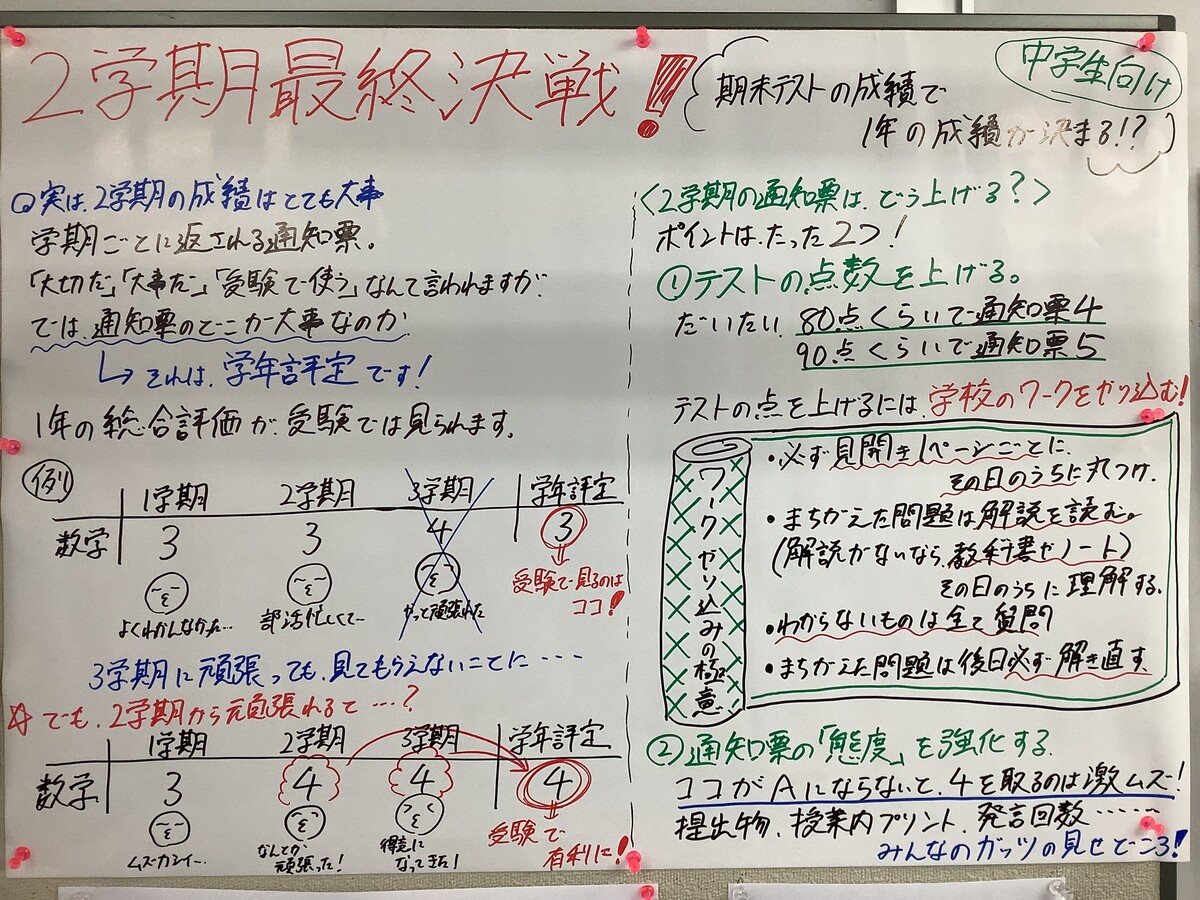 2学期最終決戦!
期末テストの成績で
1年の成績が決まる!?
中学生向け
○実は、2学期の成績はとても大事
学期ごとに返される通知票。
「大切だ」「大事だ」「受験で使う」なんて言われますが、
では、通知票のどこが大事なのか
↳それは、学年評定です!
1年の総合評価が、受験では見られます。
例
1学期 2学期 3学期 学年評定
数学 3 3 4 3
よくわかんなかった… 部活忙しくて… やって頑張れた
受験で見るのは
ココ!
3学期に頑張っても、見てもらえないことに…
☆でも、2学期から頑張れると…?
1学期 2学期 3学期 学年評定
数学 3 4 4 4
ムズカシイ… なんとか頑張った! 得意になってきた!
受験で
有利に!
〈2学期の通知票は、どう上げる?〉
ポイントは、たった2つ!
①テストの点数を上げる。
だいたい 80点くらいで通知票4
90点くらいで通知票5
テストの点を上げるには、学校のワークをやり込む!
ワークやり込みの極意
・必ず見開き1ページごとに、
その日のうちに丸つけ。
・まちがえた問題は解説を読む。
(解説がないなら、教科書やノート)
その日のうちに理解する。
・わからないものは全て質問
・まちがえた問題は後日必ず解き直す。
②通知票の「態度」を強化する。
ココがAにならないと、4を取るのは激ムズ!
提出物、授業内プリント、発言回数……
みんなのガッツの見せどころ!